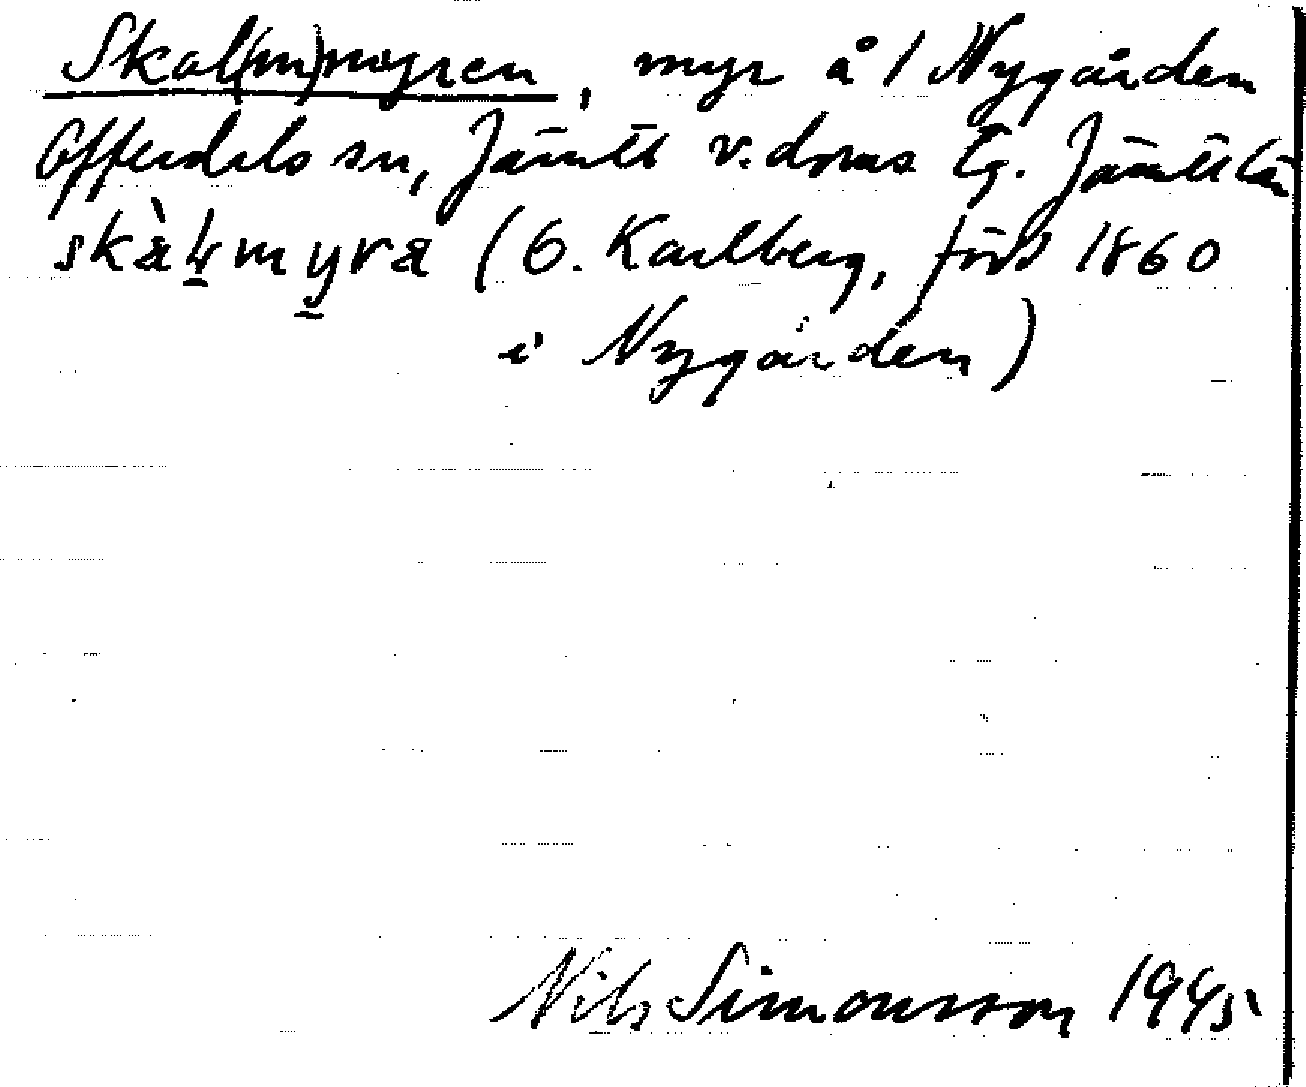 Skal(m)myren, myr å 1 Nygården
Offerdals sn, Jämtl v. doms lg. Jämtl län
skàḷmyra (G. Karlberg, född 1860
i Nygården)
Nils Simonsson 1945